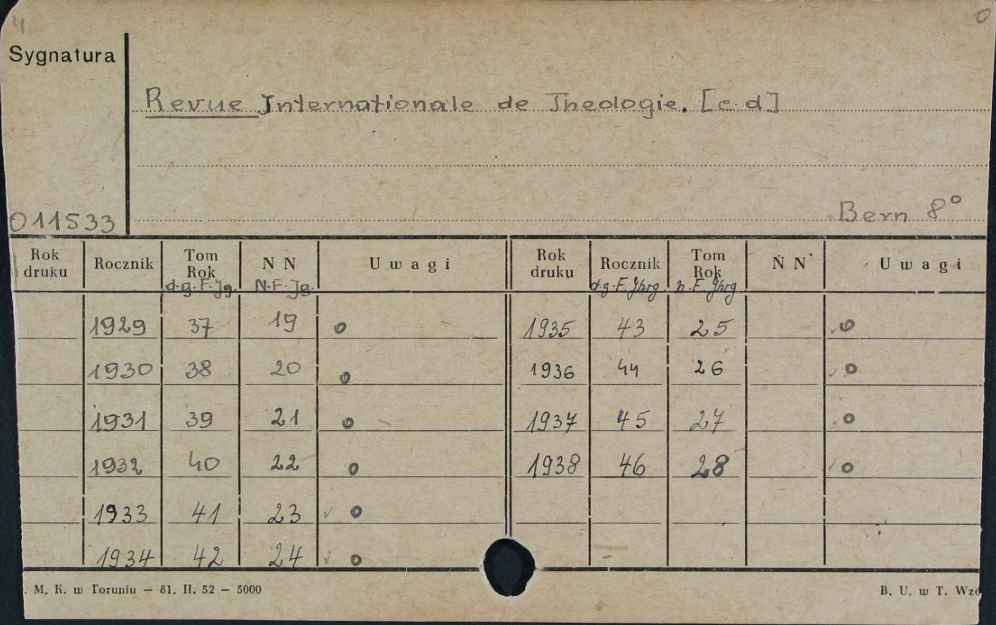 4
0
Sygnatura
Revue Internationale de Theologie. [c.d]
011533
Bern 8°
Rok druku Rocznik Tom Rok N N Uwagi Rok druku Rocznik Tom Rok N N Uwagi
d.g.F.Jg. N.F.Jg. d.g.F.Jhrg. n.F.Jhrg.
1929 37 19 o 1935 43 25 o
1930 38 20 o 1936 44 26 o
1931 39 21 o 1937 45 27 o
1932 40 22 o 1938 46 28 o
1933 41 23 o
1934 42 24 o
. M. K. w Toruniu — 81. II. 52 — 5000
B. U. w T. Wzó